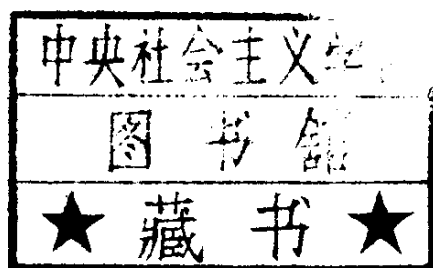 中央社会主义学
图书馆
★ 藏书 ★